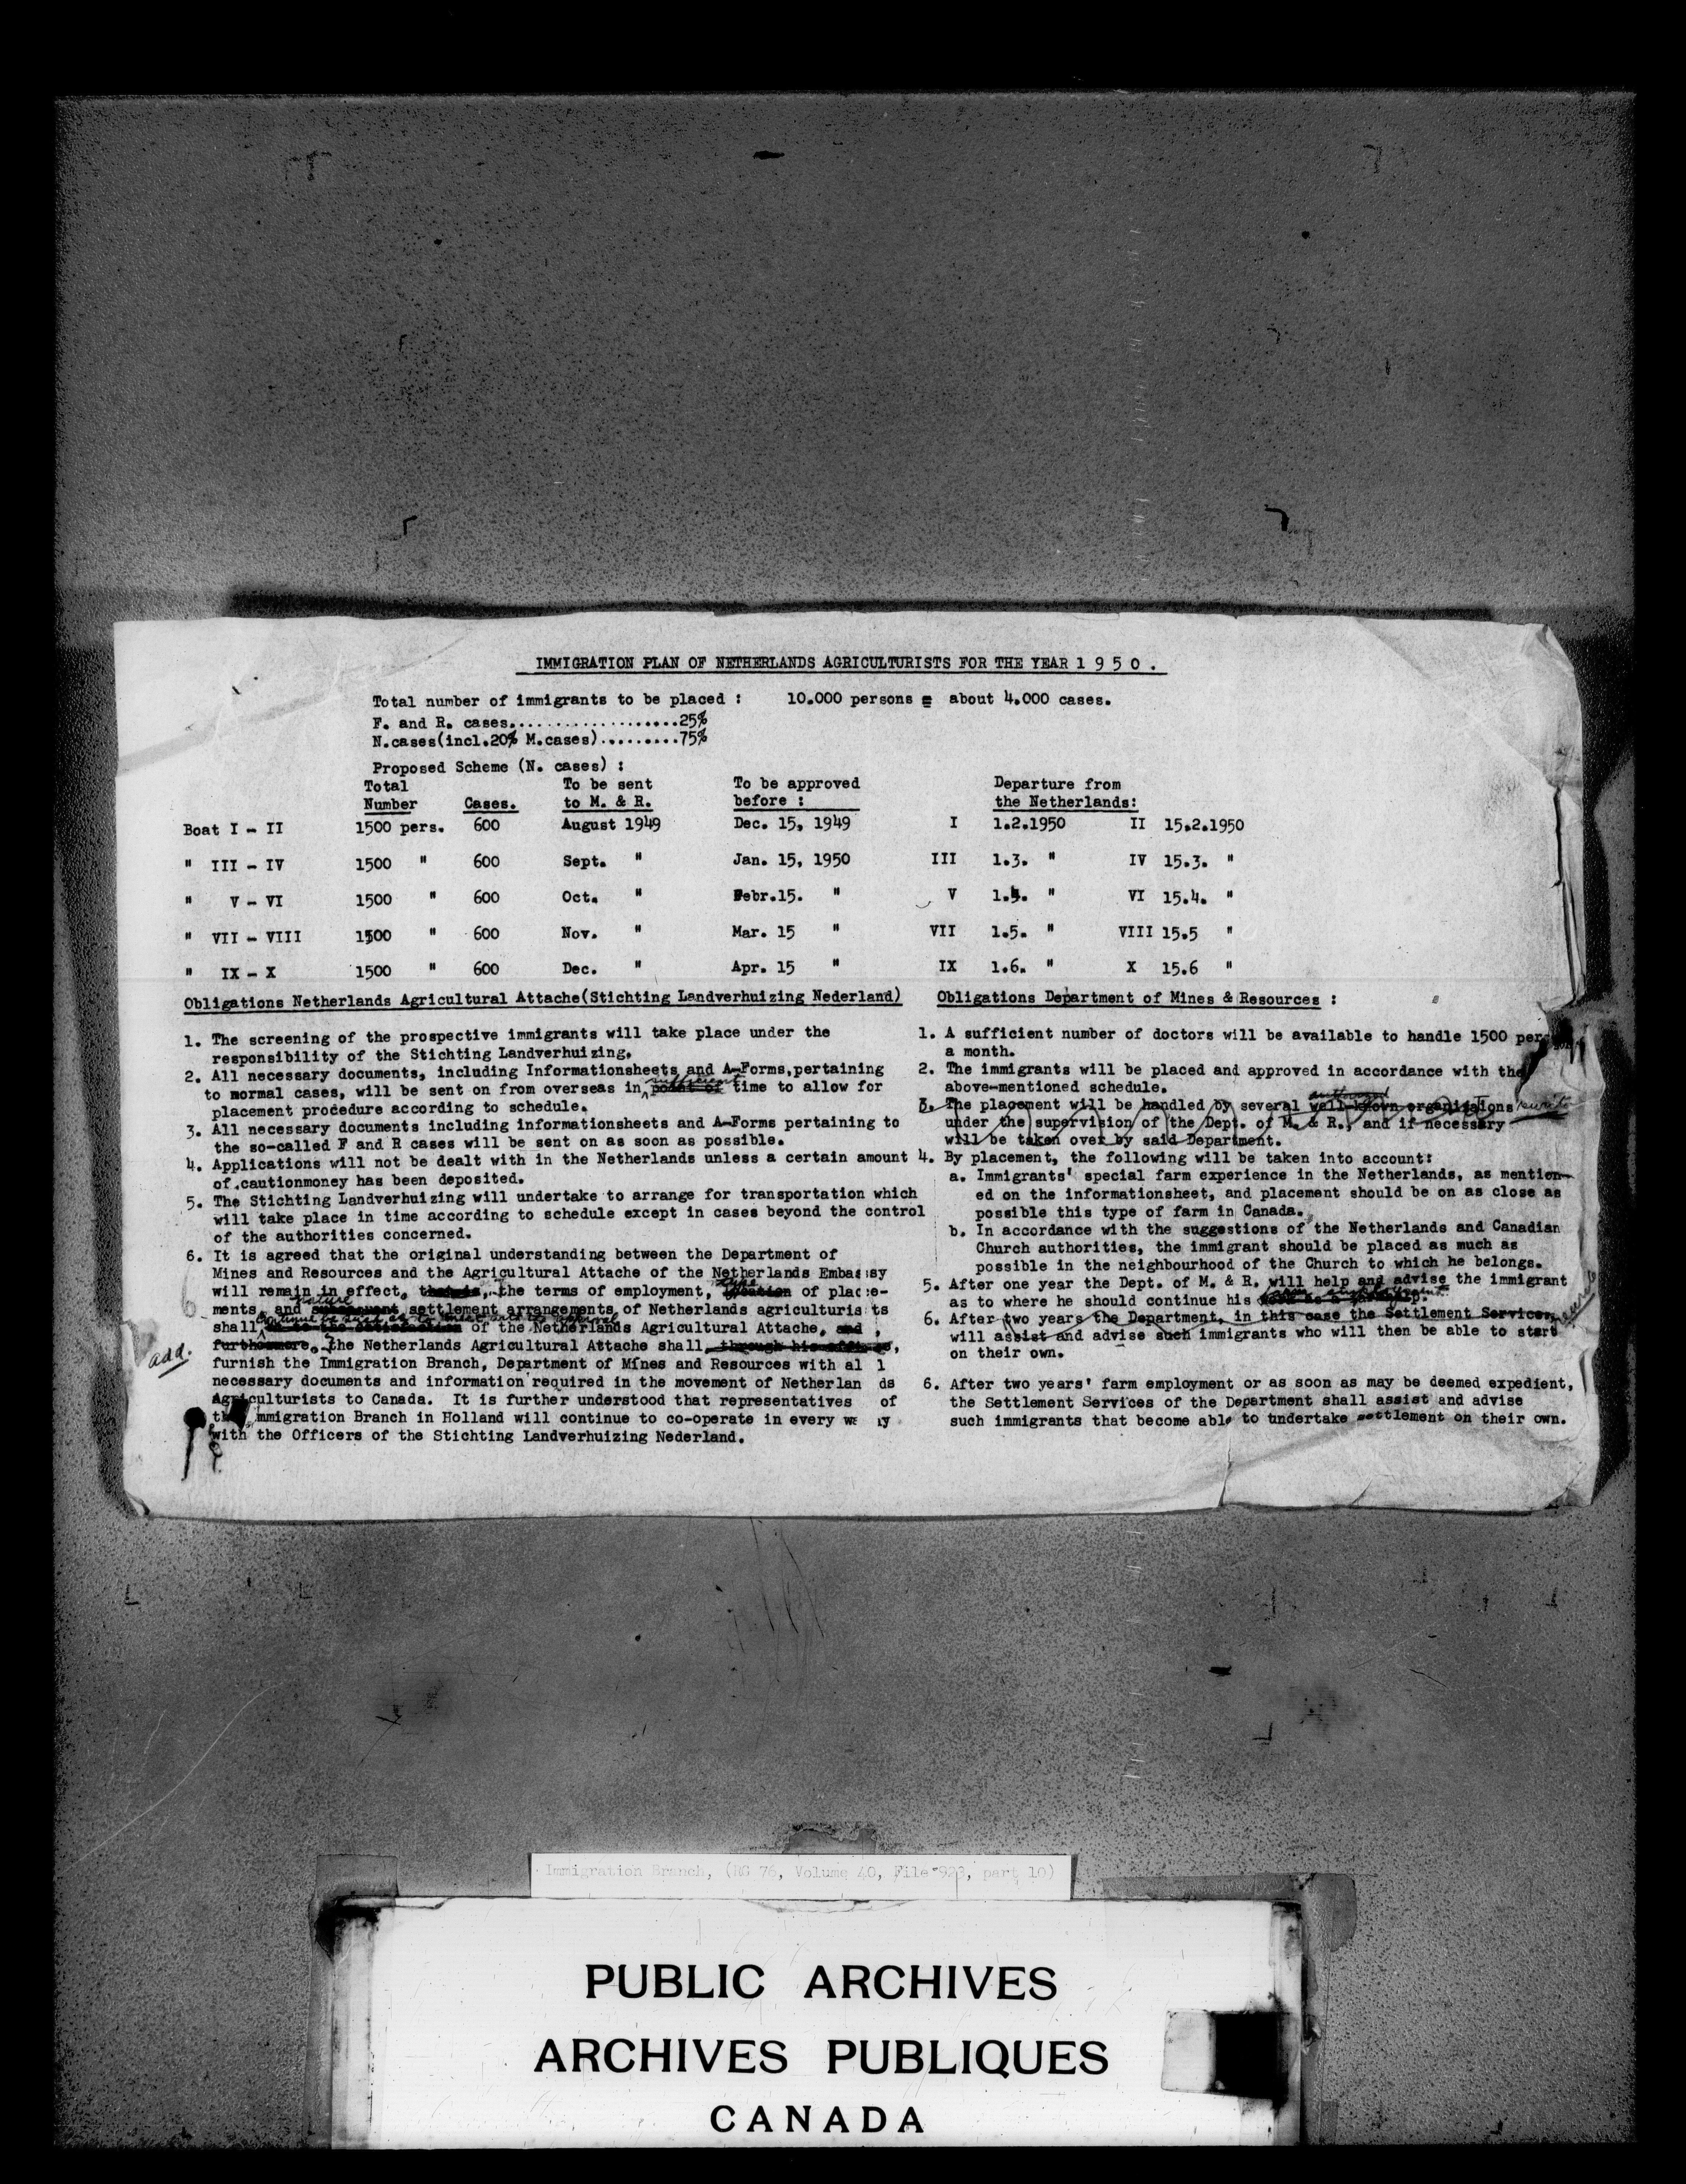 IMMIGRATION PLAN OF NETHERLANDS AGRICULTURISTS FOR THE YEAR 1 9 5 0 .
Total number of immigrants to be placed : 10.000 persons = about 4.000 cases.
F. and R. cases...................25%
N.cases(incl.20% M.cases).........75%
Proposed Scheme (N. cases) :
Total To be sent To be approved Departure from
Number Cases. to M. & R. before : the Netherlands:
Boat I - II 1500 pers. 600 August 1949 Dec. 15, 1949 I 1.2.1950 II 15.2.1950
" III - IV 1500 " 600 Sept. " Jan. 15, 1950 III 1.3. " IV 15.3. "
" V - VI 1500 " 600 Oct. " Febr.15. " V 1.4. " VI 15.4. "
" VII - VIII 1500 " 600 Nov. " Mar. 15 " VII 1.5. " VIII 15.5 "
" IX - X 1500 " 600 Dec. " Apr. 15 " IX 1.6. " X 15.6 "
Obligations Netherlands Agricultural Attache(Stichting Landverhuizing Nederland)
1. The screening of the prospective immigrants will take place under the
responsibility of the Stichting Landverhuizing.
2. All necessary documents, including Informationsheets and A-Forms,pertaining
sufficient
to normal cases, will be sent on from overseas in time to allow for
placement procedure according to schedule.
3. All necessary documents including informationsheets and A-Forms pertaining to
the so-called F and R cases will be sent on as soon as possible.
4. Applications will not be dealt with in the Netherlands unless a certain amount
of cautionmoney has been deposited.
5. The Stichting Landverhuizing will undertake to arrange for transportation which
will take place in time according to schedule except in cases beyond the control
of the authorities concerned.
6. It is agreed that the original understanding between the Department of
Mines and Resources and the Agricultural Attache of the Netherlands Embassy
type
will remain in effect, the terms of employment, of place-
nature
ments, and subsequent settlement arrangements of Netherlands agriculturists
continue to be such as to meet with the approval
shall of the Netherlands Agricultural Attache, and
add.
furthermore, the Netherlands Agricultural Attache shall, through his offices,
furnish the Immigration Branch, Department of Mines and Resources with all
necessary documents and information required in the movement of Netherlands
Agriculturists to Canada. It is further understood that representatives of
the Immigration Branch in Holland will continue to co-operate in every way
with the Officers of the Stichting Landverhuizing Nederland.
Obligations Department of Mines & Resources :
1. A sufficient number of doctors will be available to handle 1500 pers
a month.
2. The immigrants will be placed and approved in accordance with the
above-mentioned schedule.
authorized
3. The placement will be handled by several well-known organizations rewrite
under the supervision of the Dept. of M. & R., and if necessary
will be taken over by said Department.
4. By placement, the following will be taken into account:
a. Immigrants' special farm experience in the Netherlands, as mention-
ed on the informationsheet, and placement should be on as close as
possible this type of farm in Canada.
b. In accordance with the suggestions of the Netherlands and Canadian
Church authorities, the immigrant should be placed as much as
possible in the neighbourhood of the Church to which he belongs.
5. After one year the Dept. of M. & R. will help and advise the immigrant
as to where he should continue his
rewrite
6. After two years the Department, in this case the Settlement Services,
will assist and advise such immigrants who will then be able to start
on their own.
6. After two years' farm employment or as soon as may be deemed expedient,
the Settlement Services of the Department shall assist and advise
such immigrants that become able to undertake settlement on their own.
Immigration Branch, (RG 76, Volume 40, File 923, part 10)
PUBLIC ARCHIVES
ARCHIVES PUBLIQUES
CANADA